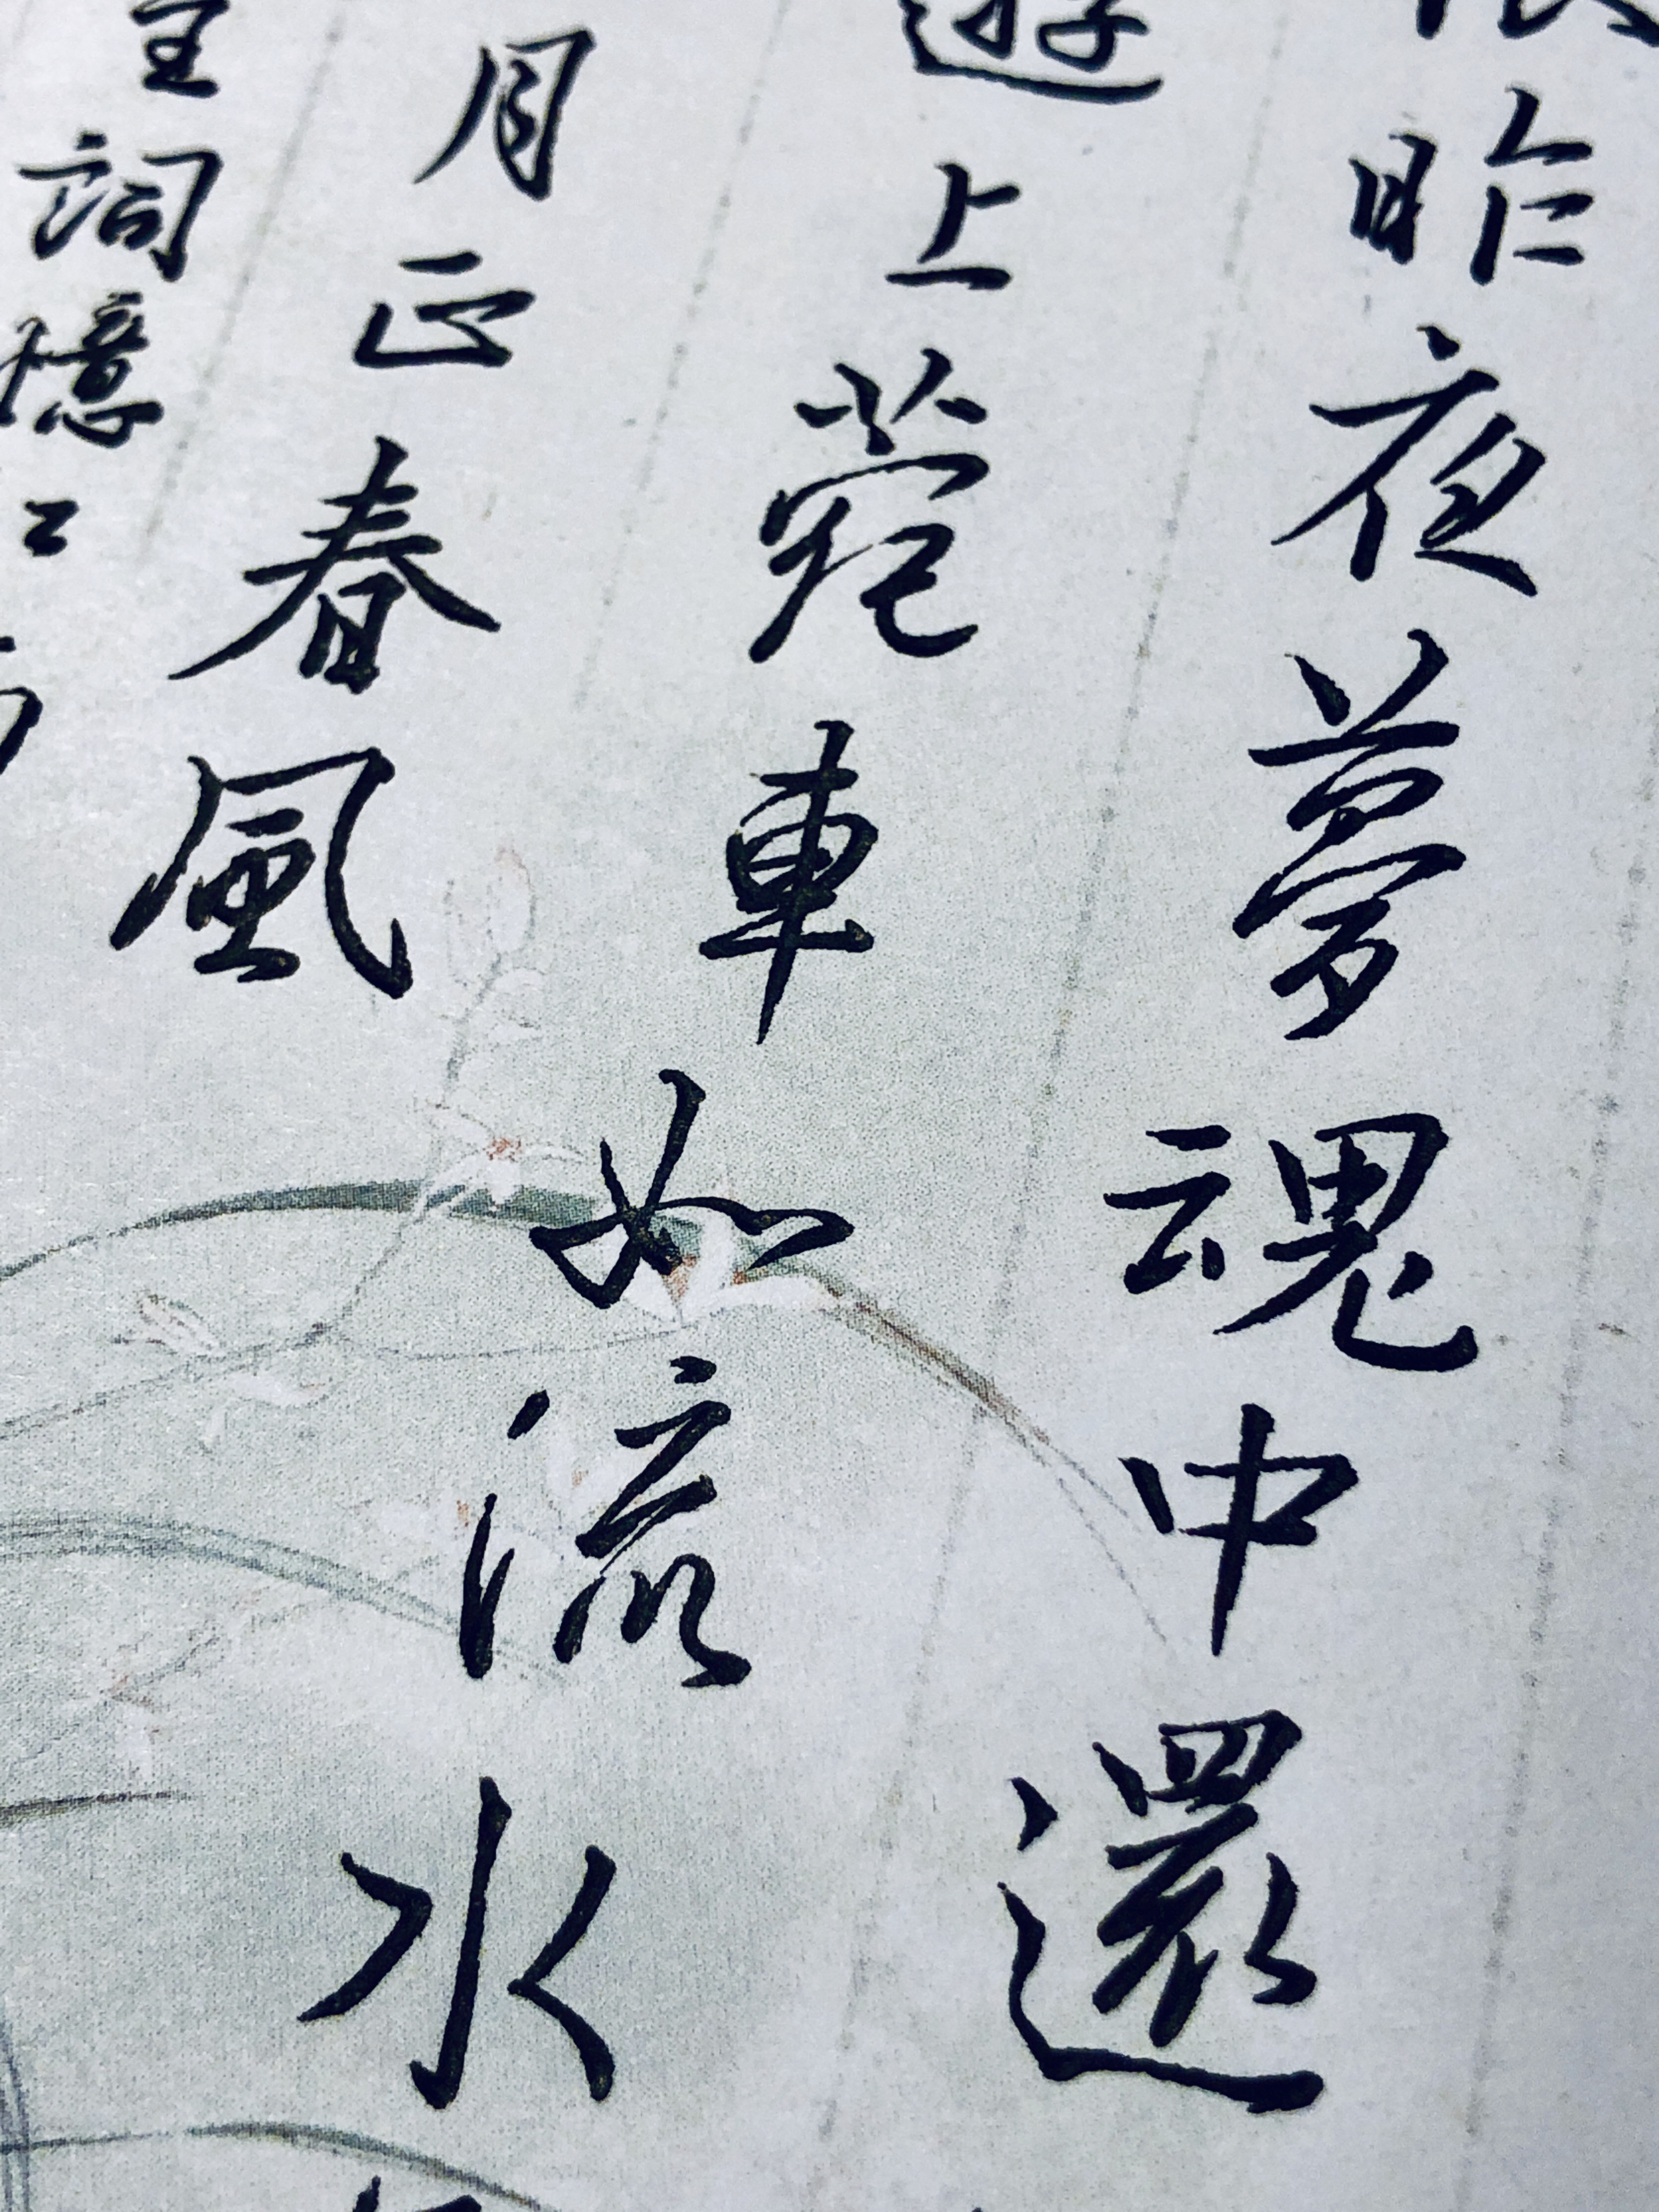 昨夜夢魂中還
遊上苑車如流水
月正春風
主詞憶江